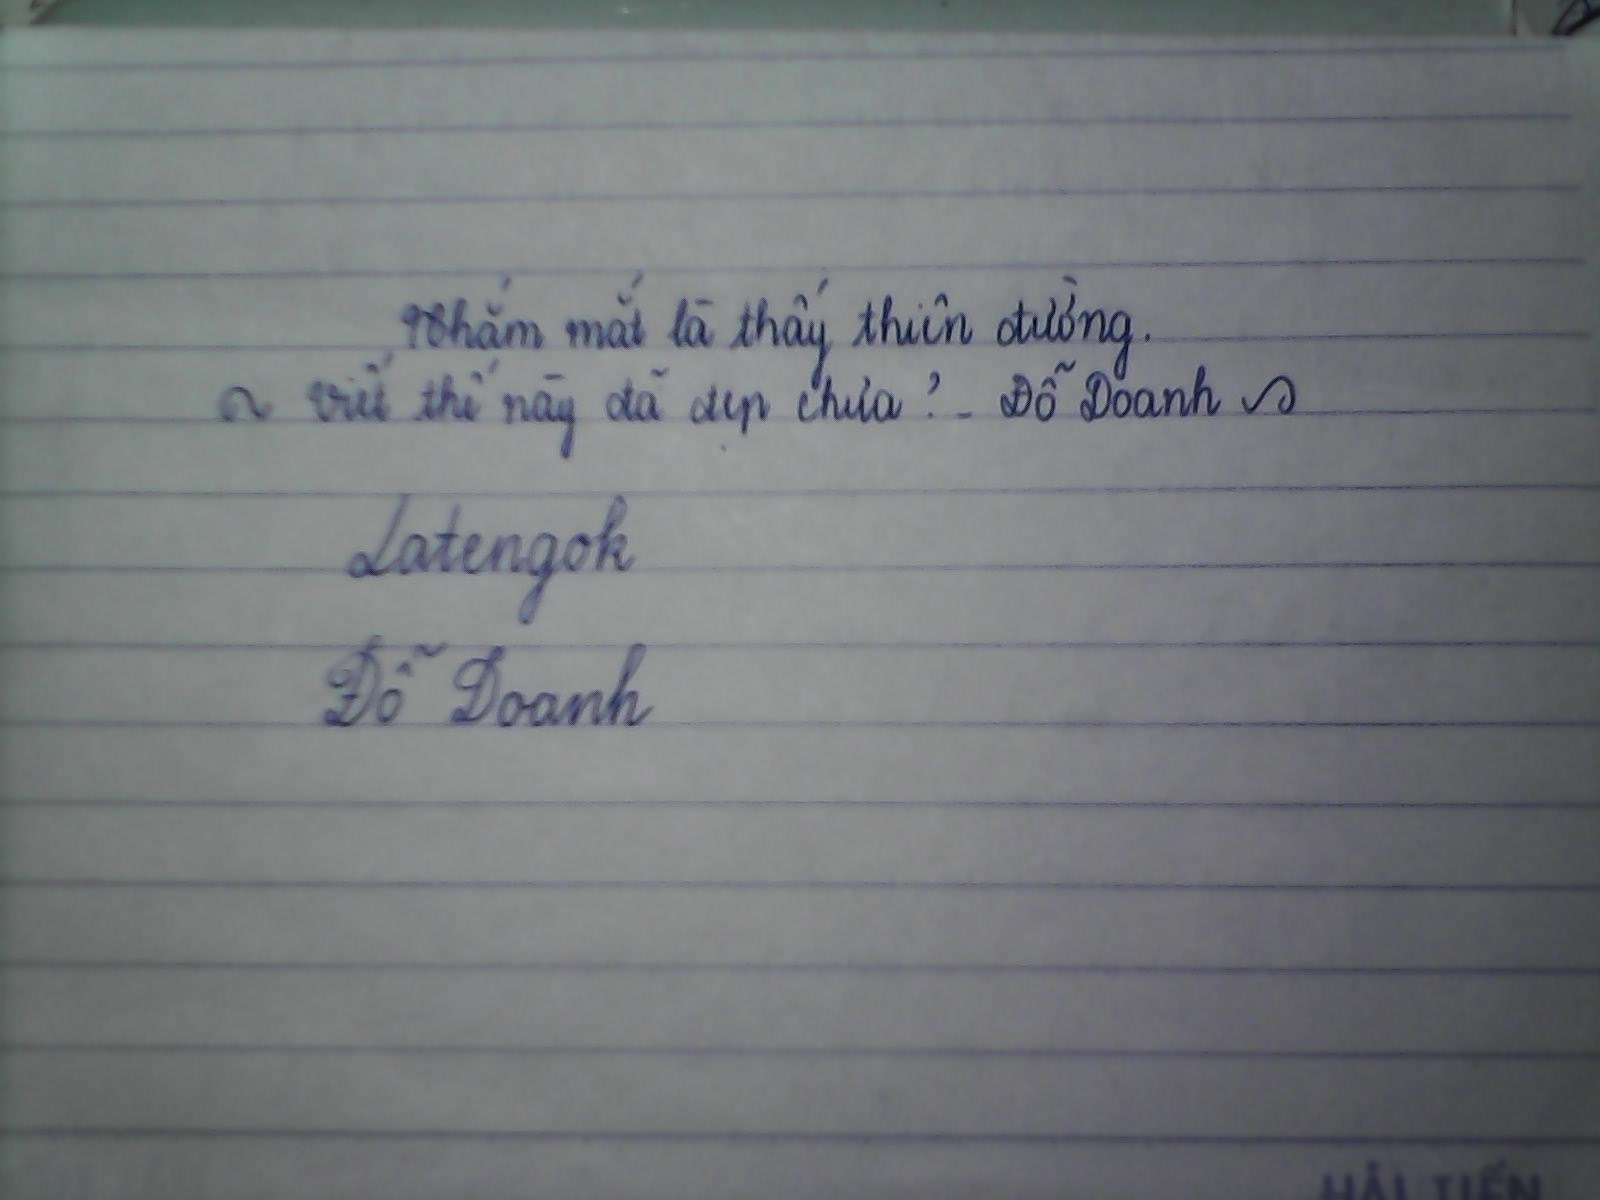 Nhắm mắt là thấy thiên đường.
~ Viết thế này đã đẹp chưa? - Đỗ Doanh ~
Latengok
Đỗ Doanh
HẢI TIẾN